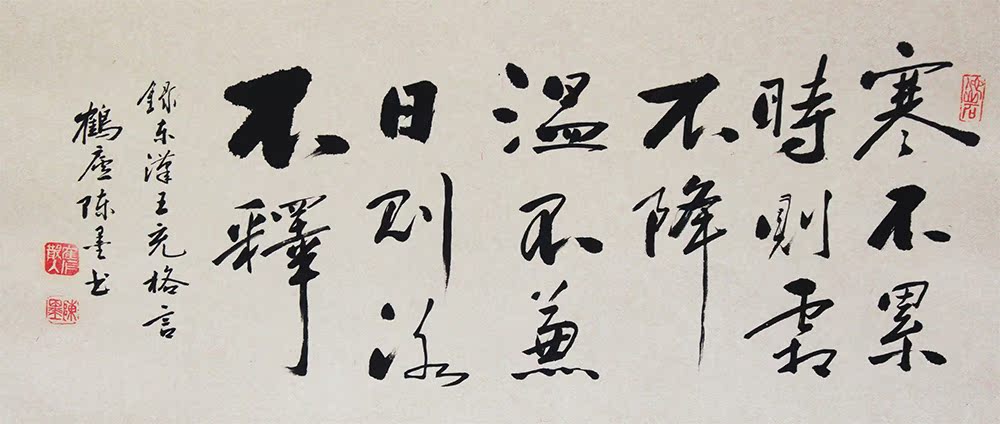 寒不累
時則霜
不降
溫不兼
日則冰
不釋
錄東漢王充格言
鶴廬陳墨書
陳墨